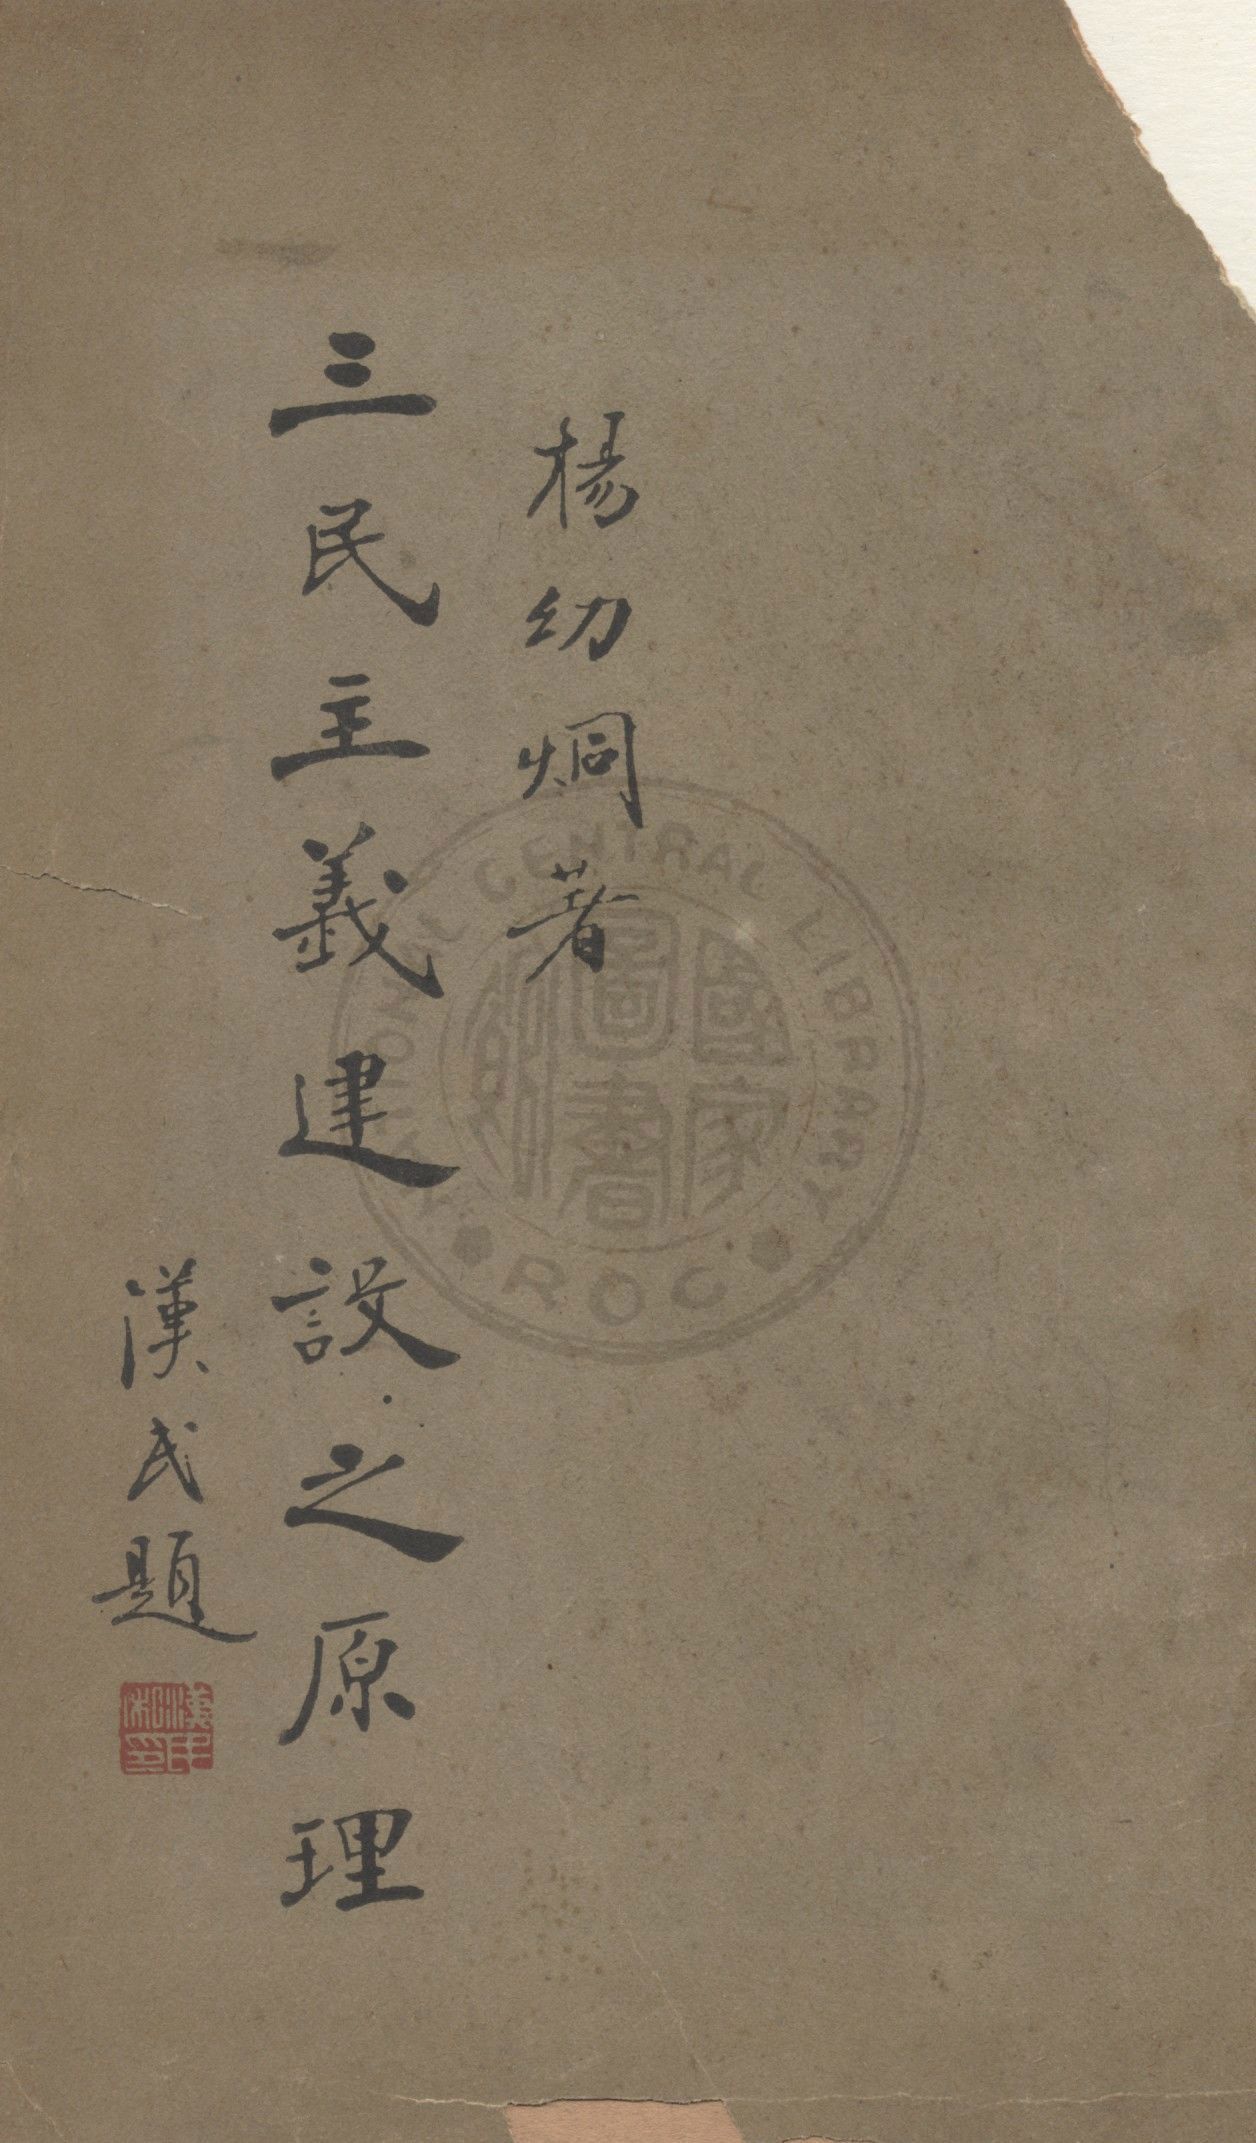 楊幼炯著
三民主義建設之原理
漢民題
NATIONAL CENTRAL LIBRARY
國家
圖書
館
ROC